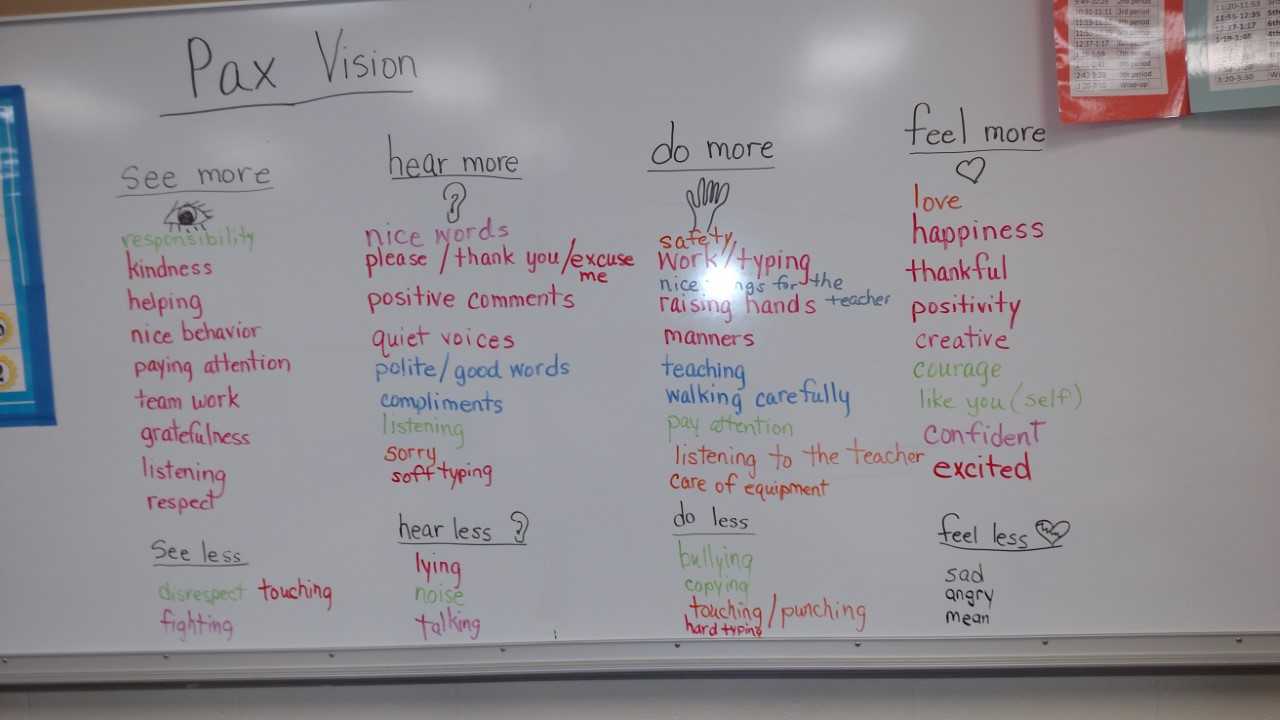 Pax Vision
see more
responsibility
kindness
helping
nice behavior
paying attention
team work
gratefulness
listening
respect
see less
disrespect touching
fighting
hear more
nice words
please / thank you / excuse
me
positive comments
quiet voices
polite / good words
compliments
listening
sorry
soft typing
hear less
lying
noise
talking
do more
safety
work / typing
nice for the
teacher
raising hands
manners
teaching
walking carefully
pay attention
listening to the teacher
care of equipment
do less
bullying
copying
touching / punching
hard typing
feel more
love
happiness
thankful
positivity
creative
courage
like you (self)
confident
excited
feel less
sad
angry
mean